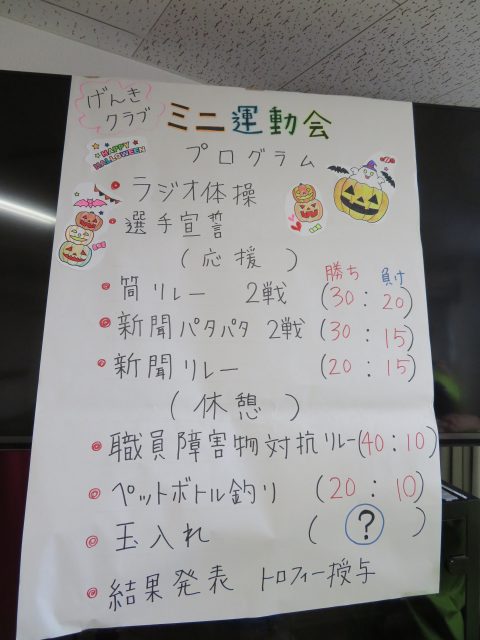 げんき
クラブ
ミニ運動会
HAPPY
HALLOWEEN
プログラム
ラジオ体操
選手宣誓
(応援)
勝ち 負け
筒リレー 2戦 (30:20)
新聞パタパタ 2戦 (30:15)
新聞リレー (20:15)
(休憩)
職員障害物対抗リレー(40:10)
ペットボトル釣り (20:10)
玉入れ (?)
結果発表 トロフィー授与